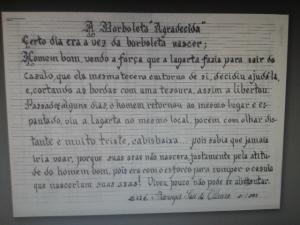 A Borboleta "Agradecida"
Certo dia era a vez da borboleta nascer;
Homem bom, vendo a força que a lagarta fazia para sair do
casulo, que ela mesma tecera em torno de si, decidiu ajudá-la,
e, cortando as bordas com uma tesoura, assim a libertou.
Passados alguns dias, o homem retornou ao mesmo lugar e es-
pantado, viu a lagarta no mesmo local, porém com olhar dis-
tante e muito triste, cabisbaixa... pois sabia que jamais
iria voar, porque suas asas não nascera, justamente pela atitu-
de do homem bom, pois era com o esforço para romper o casulo
que nasceriam suas asas! Viveu pouco, não pode se alimentar.